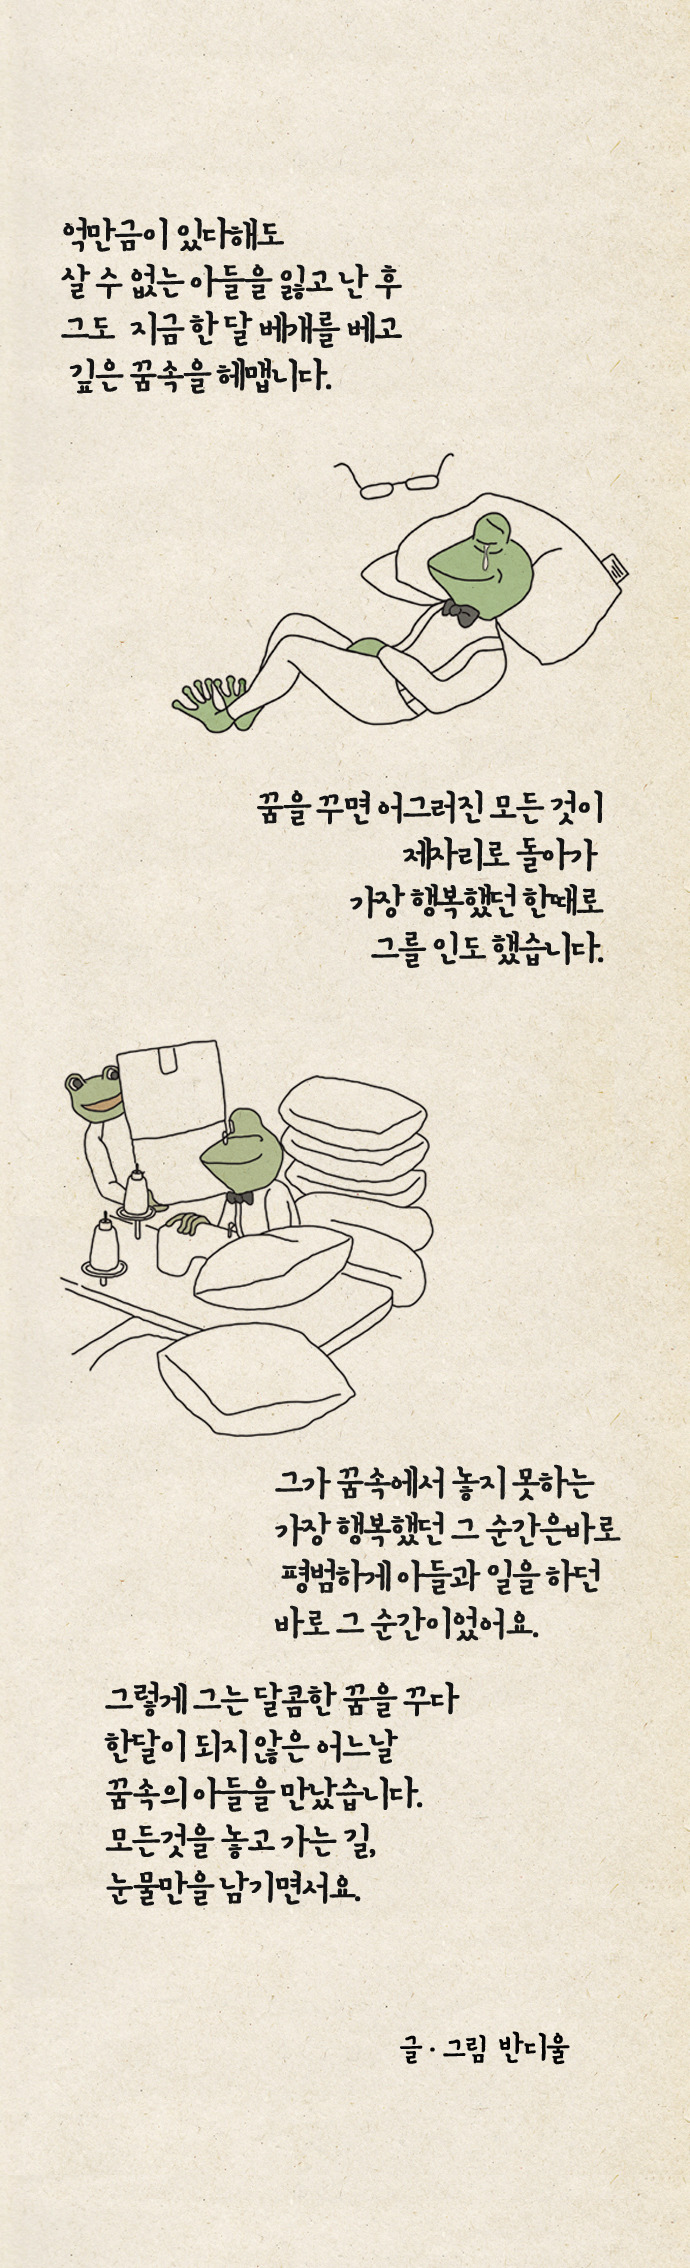 억만금이 있다해도
살 수 없는 아들을 잃고 난 후
그도 지금 한 달 베개를 베고
깊은 꿈속을 헤맵니다.
꿈을 꾸면 어그러진 모든 것이
제자리로 돌아가
가장 행복했던 한때로
그를 인도 했습니다.
그가 꿈속에서 놓지 못하는
가장 행복했던 그 순간은바로
평범하게 아들과 일을 하던
바로 그 순간이었어요.
그렇게 그는 달콤한 꿈을 꾸다
한달이 되지 않은 어느날
꿈속의 아들을 만났습니다.
모든것을 놓고 가는 길,
눈물만을 남기면서요.
글 · 그림 반디울